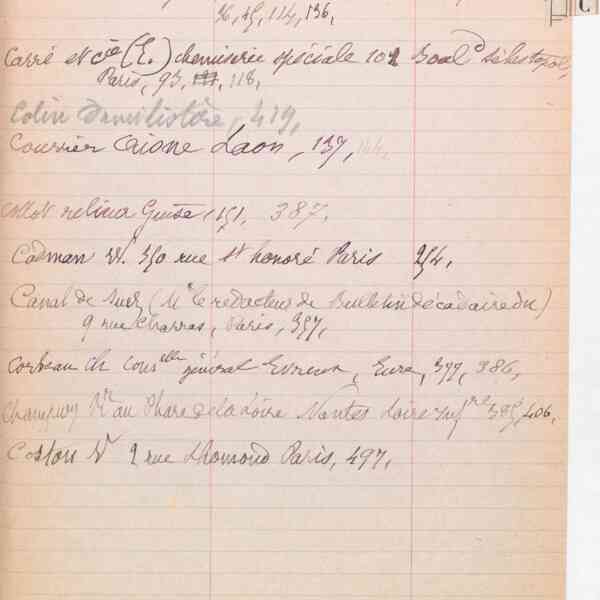 C
36, 45, 114, 136,
Carré et Cie (E.) chemiserie spéciale 102 Boald Sébastopol,
Paris, 93, 118,
Colin 419,
Courrier Aisne Laon, 137, 144,
Collot relieur Guise, 151, 387,
Cadman W. 350 rue St honoré Paris 254,
Canal de Suez (Mr le rédacteur de Bulletin décadaire du)
9 rue Charras, Paris, 357,
Corbeau Ch Conseiller général Evreux, Eure, 377, 386,
Champuoy au Phare de la Loire Nantes Loire Infre 385, 406,
Coston Vr 2 rue Lhomond Paris, 497,